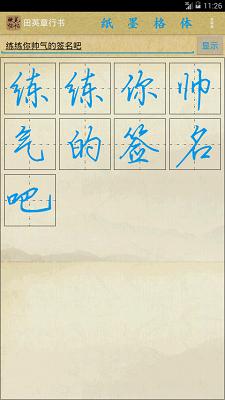 11:26
田英章行书 纸 墨 格 体
练练你帅气的签名吧 显示
练 练 你 帅
气 的 签 名
吧